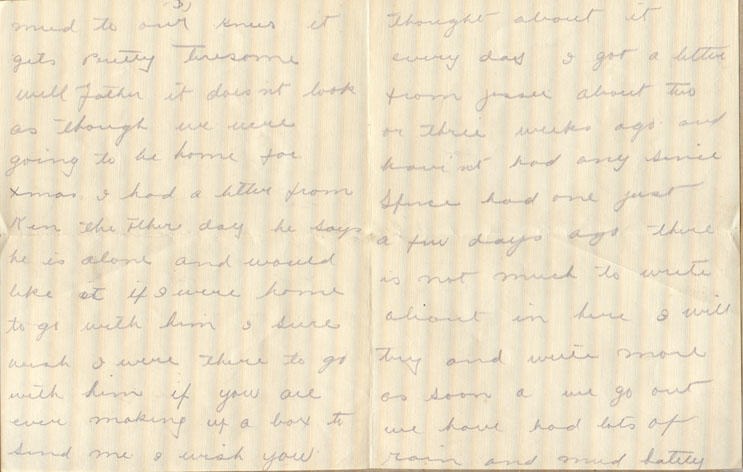 3)
mud to our knees it
gets pretty tiresome
well Father it doesnt look
as though we were
going to be home for
xmas I had a letter from
Ken the other day he says
he is alone and would
like it if I were home
to go with him I sure
wish I were there to go
with him if you are
ever making up a box to
send me I wish you
thought about it
every day I got a letter
from Jesse about two
or three weeks ago and
havint had any since
had one just
a few days ago there
is not much to write
about in here I will
try and write more
as soon a we go out
we have had lots of
rain and mud lately